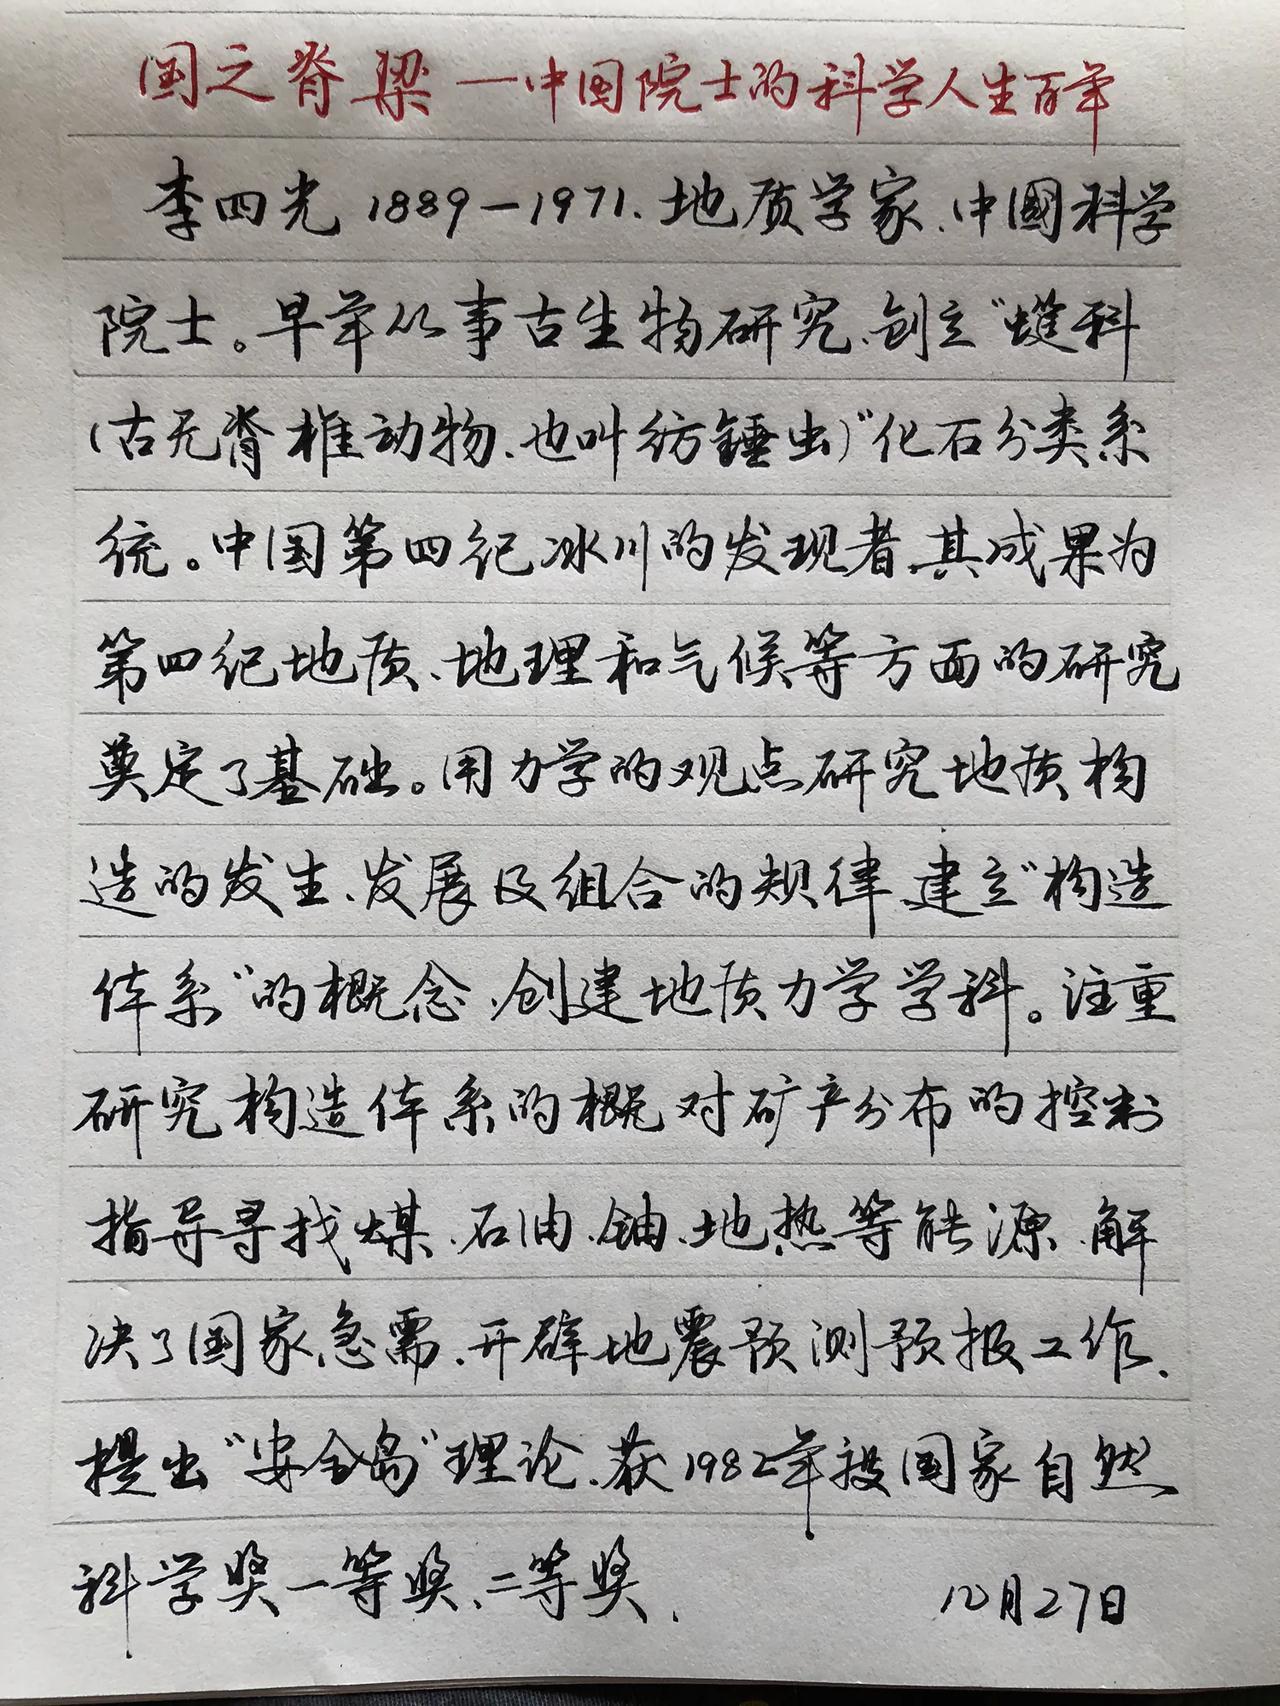 国之脊梁一中国院士的科学人生百年
李四光1889-1971、地质学家、中国科学
院士。早年从事古生物研究、创立"䗴科
(古无脊椎动物、也叫纺锤虫)"化石分类系
统。中国第四纪冰川的发现者、其成果为
第四纪地质、地理和气候等方面的研究
奠定了基础。用力学的观点研究地质构
造的发生、发展及组合的规律、建立"构造
体系"的概念、创建地质力学学科。注重
研究构造体系的概 对矿产分布的控制
指导寻找煤、石油、铀、地热等能源、解
决了国家急需、开辟地震预测预报工作、
提出"安全岛"理论、获1982年 国家自然
科学奖一等奖、二等奖、
10月27日